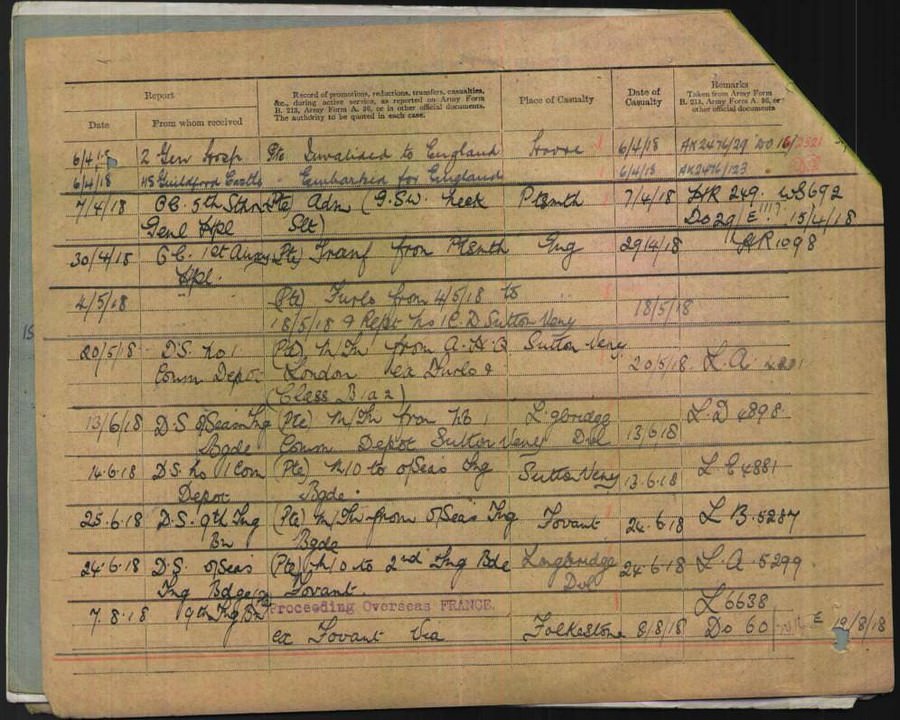 Report
Record of promotions, reductions, transfers, casualties,
&c., during active service, as reported on Army Form
B. 213, Army Form A. 36, or in other official documents.
The authority to be quoted in each case.
Place of Casualty
Date of
Casualty
Remarks
Taken from Army Form
B. 213, Army Form A. 36, or
other official documents
Date
From whom received
2 Gen Hosp Pte Invalided to England Havre 6/4/18
6/4/18 Guildford Castle Embarked for England 6/4/18
7/4/18 O.C. 5th Sthn (Pte) Adm (G.S.W. neck Ptsmth 7/4/18
Genl Hpl Slt) 15/4/18
30/4/18 O.C. 1st Aux (Pte) Transf from Ptsmth Eng 29/4/18
Hpl.
4/5/18 (Pte) Furlo from 4/5/18 to 18/5/18
18/5/18 & Rept No 1 C.D. Sutton Veny
20/5/18 D.S. No 1 (Pte) M/In from A.H.Q Sutton Veny 20/5/18 L.A.
Comm Depot London ex Furlo &
(Class B1a2)
13/6/18 D.S. O/Seas Tng (Pte) M/In from No 1 L'gbridge 13/6/18 L.D 4898
Bgde Comm Depot Sutton Veny Dvl
14.6.18 D.S. No 1 Com (Pte) M/O to O/Seas Tng Sutton Veny 13.6.18 L.C 4881
Depot Bgde.
25.6.18 D.S. 9th Tng (Pte) M/In from O/Seas Tng Fovant 24.6.18 L.B. 5287
Bn Bgde
24.6.18 D.S. O/Seas (Pte) M/O to 2nd Tng Bde Longbridge 24.6.18 L.A. 5299
Tng Bdge Fovant. Dvl
7.8.18 9th Tng Bn Proceeding Overseas FRANCE. L 6638
ex Fovant Via Folkestone 8/8/18 Do 60 E 19/8/18